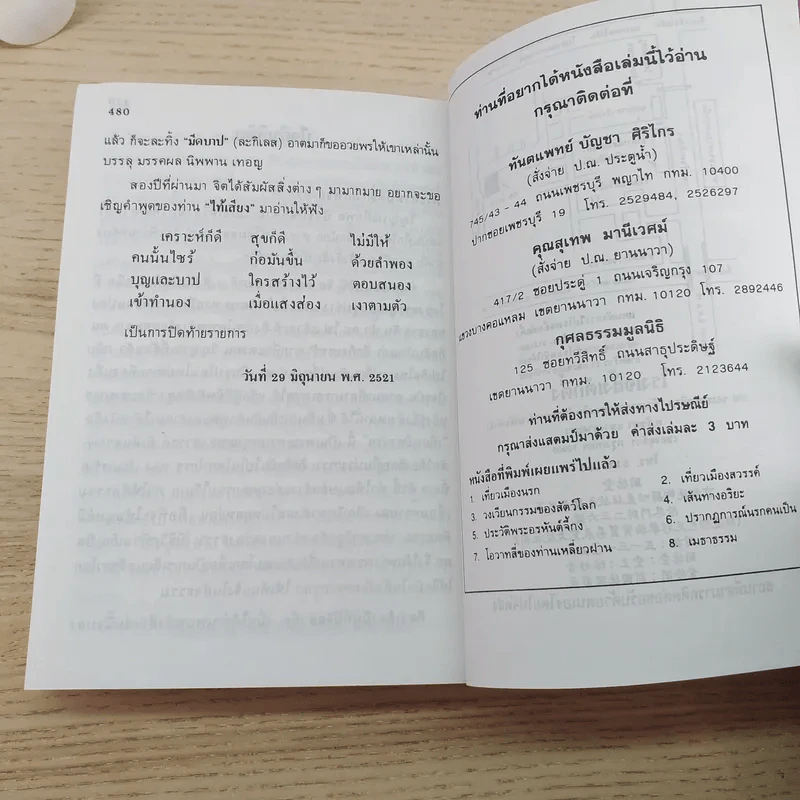 480
แล้ว ก็จะละทิ้ง "มีดบาป" (ละกิเลส) อาตมาก็ขออวยพรให้เขาเหล่านั้น
บรรลุ มรรคผล นิพพาน เทอญ
สองปีที่ผ่านมา จิตได้สัมผัสสิ่งต่าง ๆ มามากมาย อยากจะขอ
เชิญคำพูดของท่าน "ไท้เสียง" มาอ่านให้ฟัง
เคราะห์ก็ดี สุขก็ดี ไม่มีให้
คนนั้นไซร้ ก่อมันขึ้น ด้วยลำพอง
บุญและบาป ใครสร้างไว้ ตอบสนอง
เข้าทำนอง เมื่อแสงส่อง เงาตามตัว
เป็นการปิดท้ายรายการ
วันที่ 29 มิถุนายน พ.ศ. 2521
ท่านที่อยากได้หนังสือเล่มนี้ไว้อ่าน
กรุณาติดต่อที่
ทันตแพทย์ บัญชา ศิริไกร
(สั่งจ่าย ป.ณ. ประตูน้ำ)
745/43 - 44 ถนนเพชรบุรี พญาไท กทม. 10400
ปากซอยเพชรบุรี 19 โทร. 2529484, 2526297
คุณสุเทพ มานีเวศม์
(สั่งจ่าย ป.ณ. ยานนาวา)
417/2 ซอยประดู่ 1 ถนนเจริญกรุง 107
แขวงบางคอแหลม เขตยานนาวา กทม. 10120 โทร. 2892446
กุศลธรรมมูลนิธิ
125 ซอยทวีสิทธิ์ ถนนสาธุประดิษฐ์
เขตยานนาวา กทม. 10120 โทร. 2123644
ท่านที่ต้องการให้ส่งทางไปรษณีย์
กรุณาส่งแสตมป์มาด้วย ค่าส่งเล่มละ 3 บาท
หนังสือที่พิมพ์เผยแพร่ไปแล้ว
1. เที่ยวเมืองนรก 2. เที่ยวเมืองสวรรค์
3. วงเวียนกรรมของสัตว์โลก 4. เส้นทางอริยะ
5. ประวัติพระอรหันต์จี้กง 6. ปรากฏการณ์นรกคนเป็น
7. โอวาทสี่ของท่านเหลี่ยวฝาน 8. เมธาธรรม